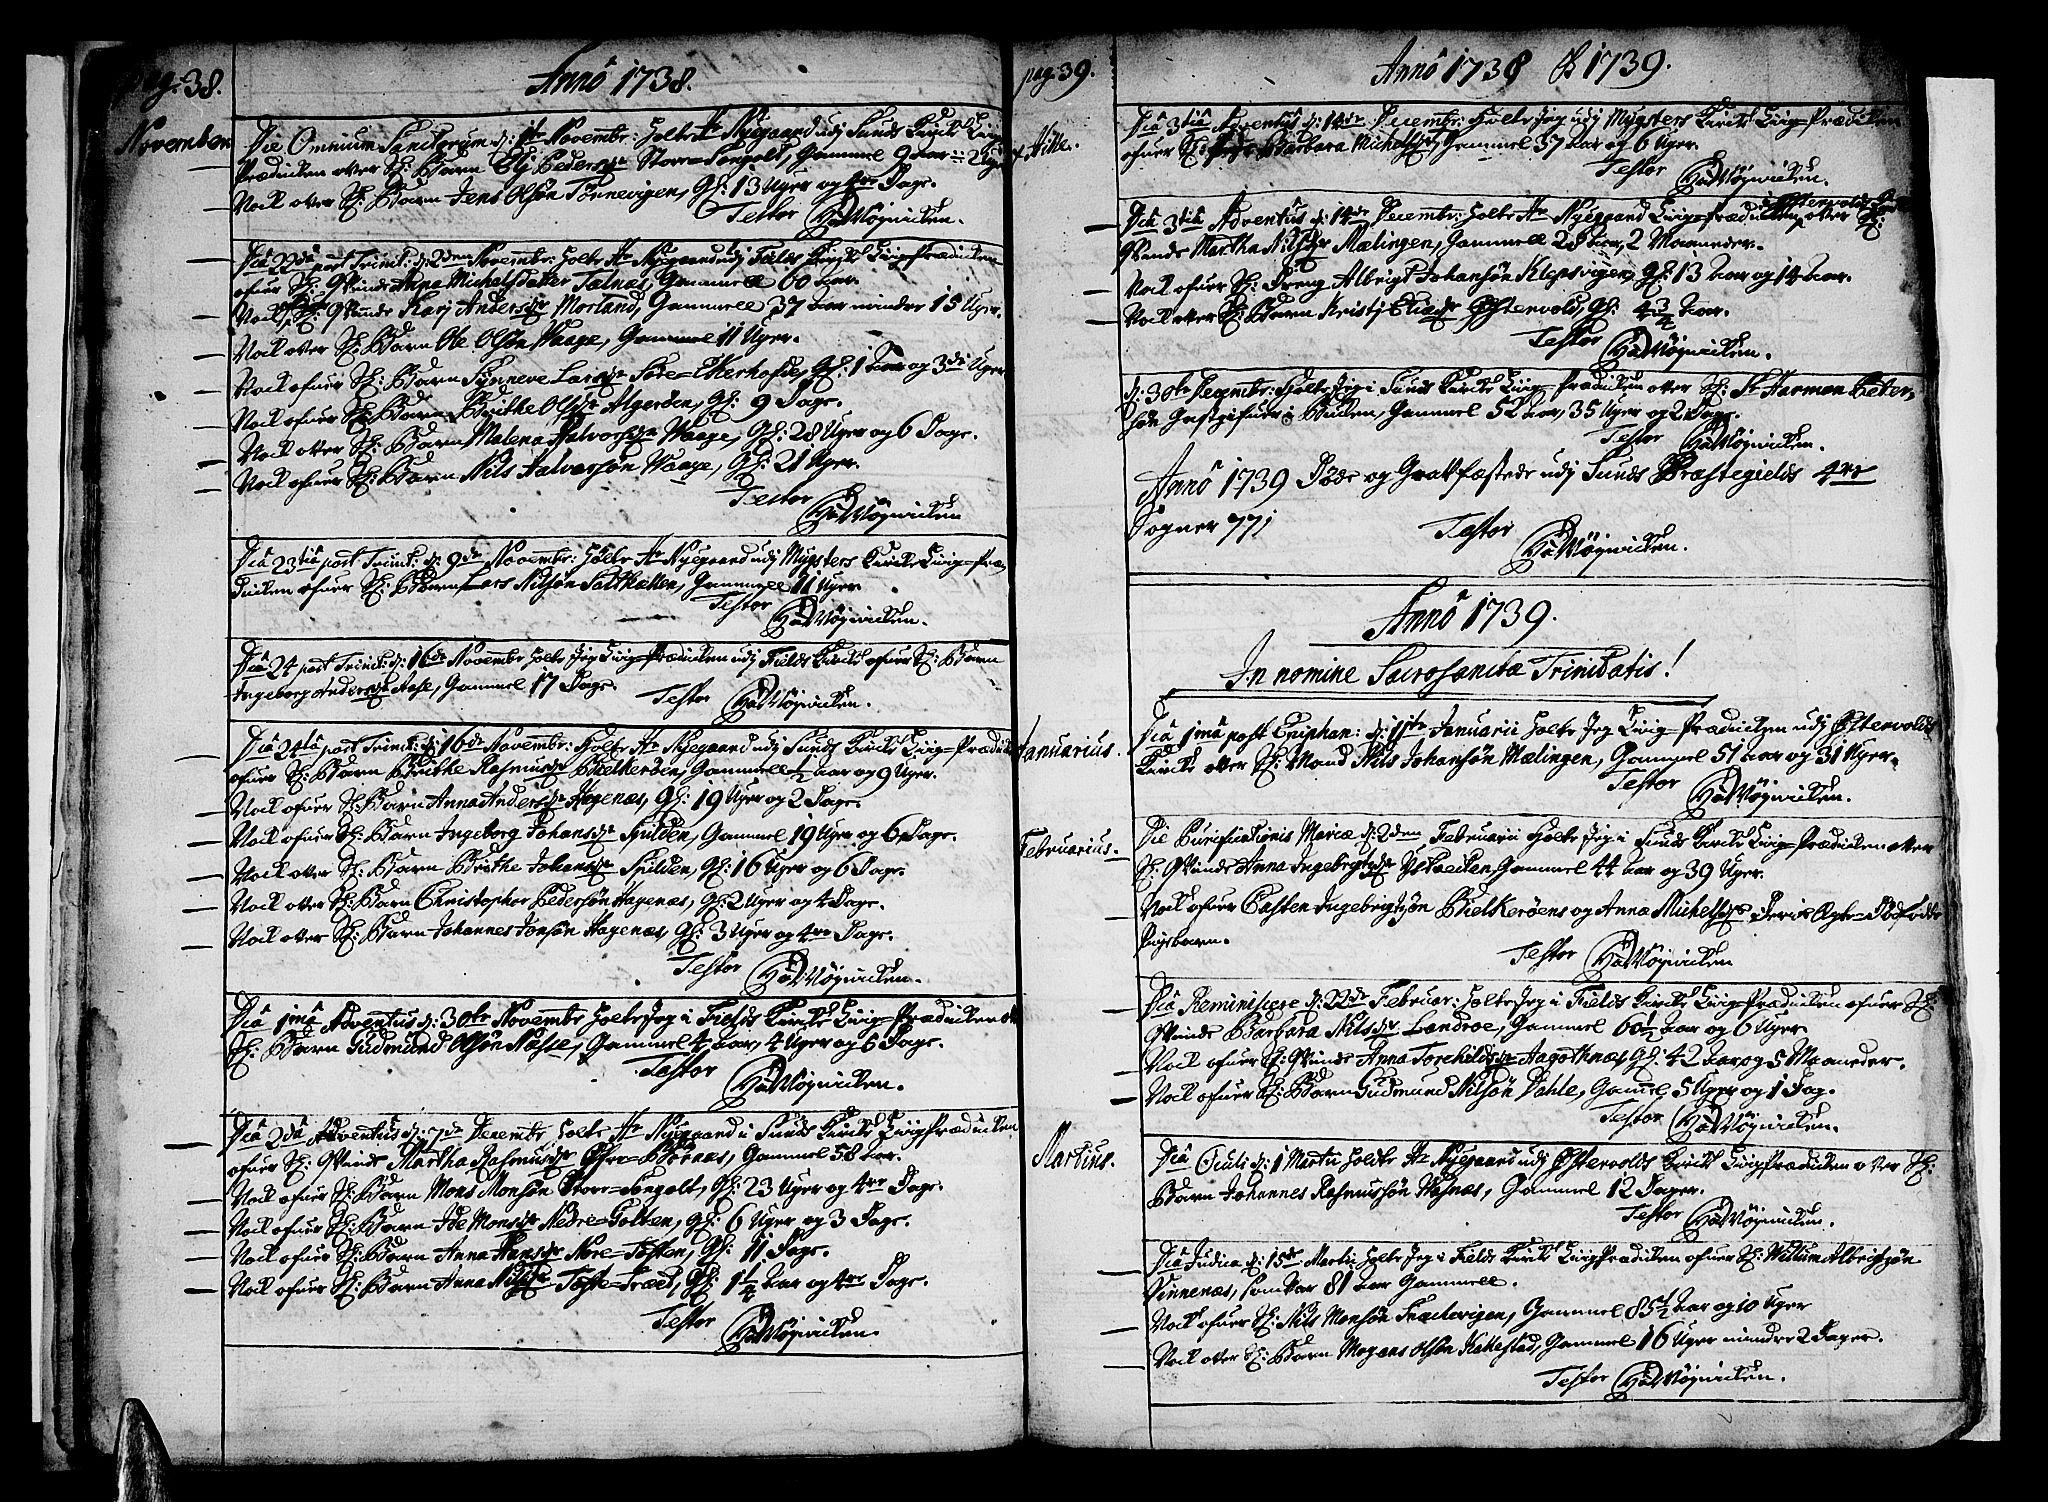 pag. 38.
Annô 1738.
November
Die Omnium Sanctorum d: 1ste Novembr: holte Hr Nyegaard udj Sunds Kircke Liig=
Prædicken over Sl: Barn Elj Peders dr Store=Songolt, Gammel 9 Aar 2 Uger
Nock over Sl: Barn Jens Olsøn Tønnevigen, Gl: 13 Uger og 4re Dage.
Testor HåwMøgwicken.
Dca 22da post Trinit: d: 2den Novembr: holte Hr Nyegaard udj Fields Kircke Liig=Prædicken
ofuer Sl: Qvinde Anna Michelsdatter Tælnæs, Gammell 60 Aar.
Nock Sl: Qvinde Karj Anders dr Morland, Gammell 37 Aar mindre 15 Uger.
Nock over Sl: Barn Ole Olsøn Waage, Gammel 11 Uger.
Nock ofuer Sl: Barn Synneve Lars dr Søre=Ekerhofde, Gl: 1 Aar og 3de Uger
Nock ofuer Sl: Barn Brithe Ols dr Algerøen, Gl: 9 Dage.
Nock over Sl: Barn Malena Halvors dr Waage, Gl: 28 Uger og 6 Dage.
Nock ofuer Sl: Barn Nils Halvorsøn Waage, Gl: 21 Uger.
Testor HåwMøgwicken
Dca 23tia post Trinit: d: 9de Novembr: holte Hr Nyegaard udj Mygsters Kircke Liig=Præ=
dicken ofuer Sl: Barn Lars Nilsøn Saltkelten, Gammell 11 Uger.
Testor HåwMøgwicken.
Dca 24 post Trinit: d: 16de Novembr holte Jeg Liig=Prædicken udj Fields Kircke ofuer Sl: Barn
Ingeborg Anders dr Aase, Gammel 17 Dage.
Testor HåwMøgwicken.
Dca 24ta post Trinit: d: 16de Novembr: holte Hr Nyegaard udj Sunds Kircke Liig=Prædick
ofuer Sl: Barn Brithe Rasmus dr Bielkerøen, Gammell ½ Aar og 9 Uger.
Nock ofuer Sl: Barn Anna Anders dr Hagenæs, Gl: 19 Uger og 2 Dage.
Nock ofuer Sl: Barn Ingeborg Johans dr Spilden, Gammel 19 Uger og 6 Dage.
Nock over Sl: Barn Brithe Johans dr Spilden, Gl: 16 Uger og 6 Dage.
Nock over Sl: Barn Christopher Pedersøn Hagenæs, Gl: 2 Uger og 4 Dage.
Nock over Sl: Barn Johannes Jonsøn Hagenæs, Gl: 3 Uger og 4re Dage.
Testor HåwMøgwicken.
Dca 1ma Adventus d: 30te Novembr holte Jeg i Fields Kircke Liig=Prædicken
Sl: Barn Gudmund Olsøn Næsse, Gammel 4 Aar, 4 Uger og 6 Dage.
Testor HåwMøgwicken.
Dca 2da Adventus d: 7de Decembr holte Hr Nyegaard i Sunds Kircke Liig Prædicken
ofuer Sl: Qvinde Martha Rasmus dr Børnæs, Gammel 58 Aar.
Nock ofuer Sl: Barn Mons Monsøn Store=Songolt, Gl: 23 Uger og 4re Dage.
Nock ofuer Sl: Barn Ide Mons dr Nedre=Golten, Gl: 6 Uger og 3 Dage.
Nock ofuer Sl: Barn Anna Hans dr Nore=Toften, Gl: 11 Dage.
Nock ofuer Sl: Barn Anna Nils dr Tofte=Træet, Gl: 1¼ Aar og 4re Dage.
Testor HåwMøgwicken.
pag. 39.
Annô 1738 & 1739.
Dca 3tia Adventus d: 14de Decembr: holte Jeg udj Mygsters Kircke Liig=Prædicken
ofuer Sl: Barbara Michels dr, Gammel 37 Aar og 6 Uger.
Testor HåwMøgwicken.
Dca 3tia Adventus d: 14de Decembr: holte Hr Nyegaard Liig=Prædicken over Sl:
Qvinde Martha Nils dr Mælingen, Gammell 28 Aar, 2 Maaneder.
Nock ofuer Sl: Dreng Albrigt Johansøn Klepsvigen, Gl: 13 Aar og 14 Aar.
Nock over Sl: Barn Kristj Elias dr Østervold, Gl: 4¾ Aar.
Testor HåwMøgwicken.
d: 30te Decembr: holte Jeg i Sunds Kircke Liig=Prædicken over Sl: Sr Harmen Peter=
søn Gastgifuer i Bucken, Gammel 52 Aar, 35 Uger og 2 Dage.
Testor HåwMøgwicken.
Annô 1739 Døde og Grafffæstede udj Sunds Præstegields 4re
Sogner 77j
Testor HåwMøgwicken.
Annô 1739.
In nomine Sacrosanctæ Trinitatis!
Januarius.
Dca 1ma post Epiphan: d: 11te Januarii holte Jeg Liig=Prædicken udj Østervolds
Kircke over Sl: Mand Nils Johansøn Mælingen, Gammel 51 Aar og 31 Uger.
Testor HåwMøgwicken.
Februarius.
Die Purificationis Mariæ d: 2den Februarii holte Jeg i Sunds Kircke Liig=Prædicken over
Sl: Qvinde Anna Ingebrigts dr Gammel 44 Aar og 39 Uger.
Nock ofuer Casten Ingebrigtsøn Bielkerøens og Anna Michels dr Ægte=Dødfødde
Pigebarn.
Testor HåwMøgwicken
Dca Reminiscere d: 22de Februar: holte Jeg i Fields Kircke Liig=Prædicken ofuer Sl:
Qvinde Barbara Nils dr Landroe, Gammel 60½ Aar og 6 Uger.
Nock ofuer Sl: Qvinde Anna Torchilds dr Aagothnæs, Gl: 42 Aar og 5 Maaneder.
Nock ofuer Sl: Barn Gudmund Nilsøn Dahle, Gammel 5 Uger og 1 Dag.
Testor HåwMøgwicken.
Martius.
Dca Oculi d: 1 Martii holte Hr Nyegaard udj Østervolds Kircke Liig Prædicken over Sl:
Barn Johannes Rasmussøn Hofnæs, Gammel 12 Dager.
Testor HåwMøgwicken.
Dca Judica d: 15de Martii holte Jeg i Fields Kircke Liig Prædicken ofuer Sl: Willum Albrigtsøn
Vinnenæs, som var 81 Aar Gammell.
Nock ofuer Sl: Nils Monsøn Træelevigen, Gammel 85½ Aar og 10 Uger
Nock over Sl: Barn Mogens Olsøn Kallestad, Gammel 16 Uger mindre 2 Dager.
Testor HåwMøgwicken.